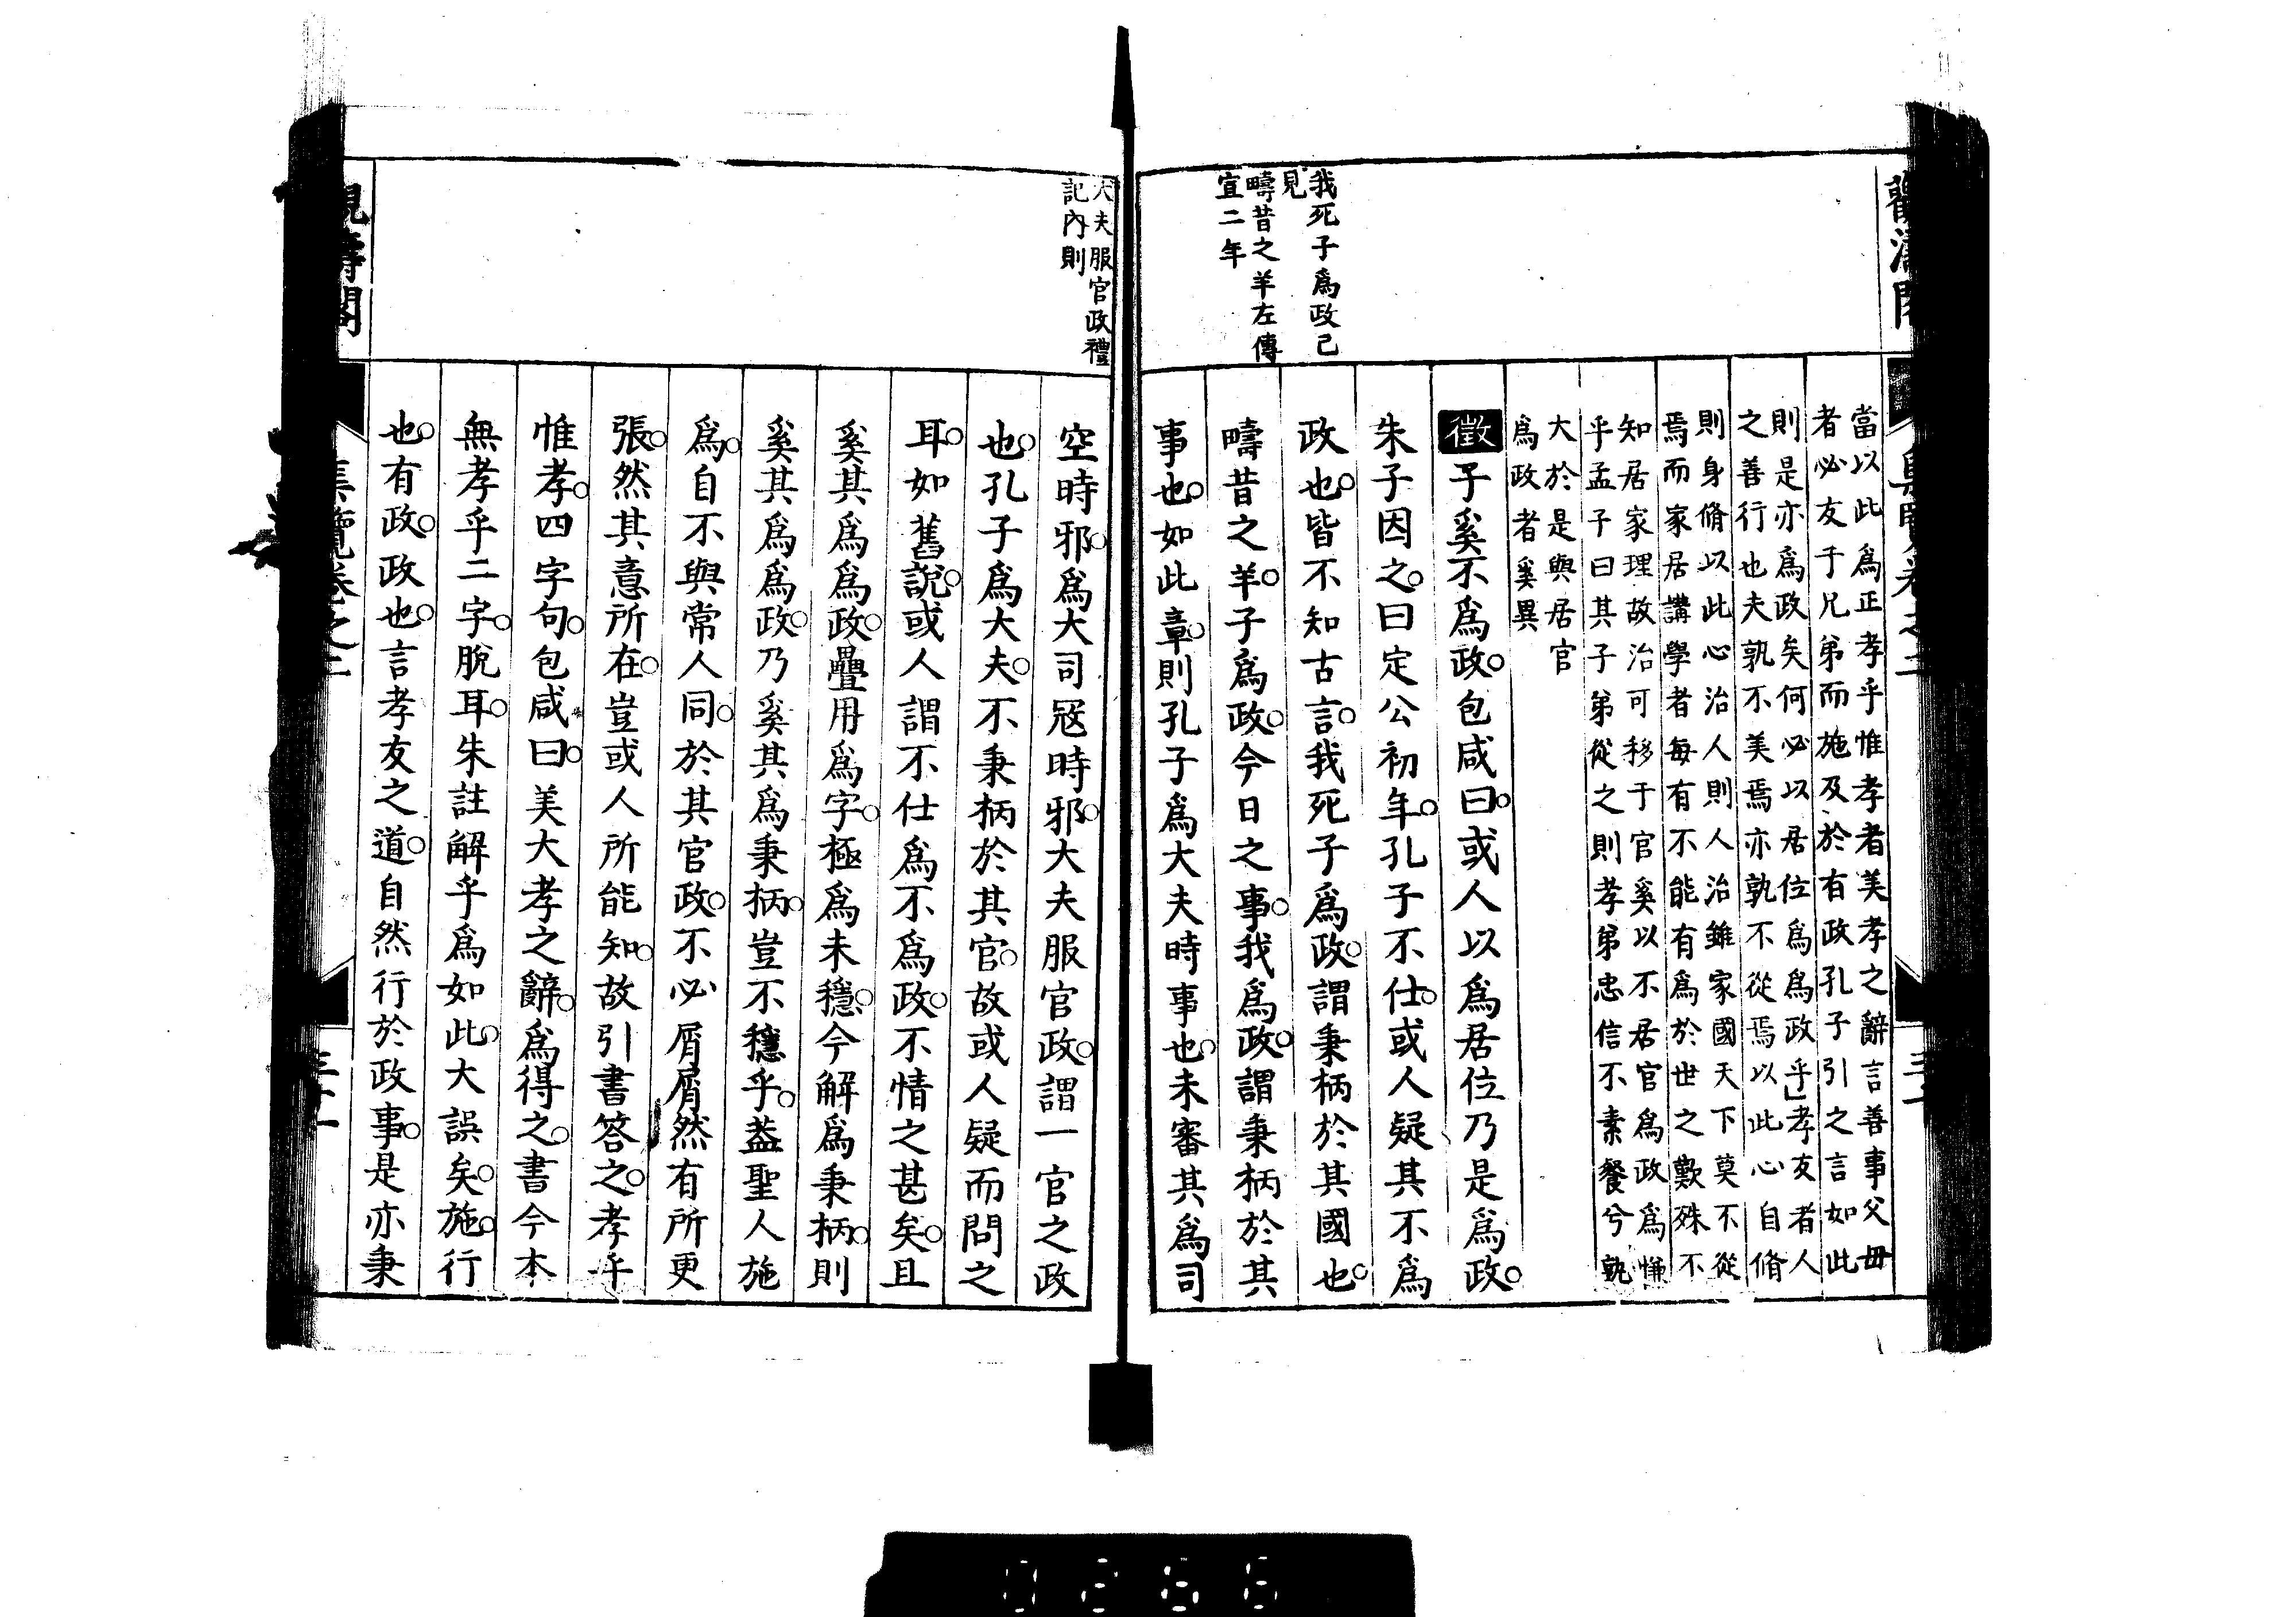 當以此爲正孝乎惟孝者美孝之辭言善事父毋
者必友于兄弟而施及於有政孔子引之言如此
則是亦爲政矣何必以居位爲爲政乎」孝友者人
之善行也夫孰不美焉亦孰不從焉以此心自脩
則身脩以此心治人則人治雖家國天下莫不從
焉而家居講學者每有不能有爲於世之歎殊不
知居家理故治可移于官奚以不居官爲政爲慊
乎孟子曰其子弟從之則孝弟忠信不素餐兮孰
大於是與居官
爲政者奚異
徵子奚不爲政。包咸曰。或人以爲居位乃是爲政。
朱子因之。曰定公初年。孔子不仕。或人疑其不爲
政也。皆不知古言。我死子爲政。謂秉柄於其國也。
疇昔之羊。子爲政。今日之事。我爲政。謂秉柄於其
事也。如此章。則孔子爲大夫時事也。未審其爲司
我死子爲政已
見
疇昔之羊左傳
宣二年
空時邪。爲大司寇時邪。大夫服官政。謂一官之政
也。孔子爲大夫。不秉柄於其官。故或人疑而問之
耳。如舊說。或人謂不仕爲不爲政。不情之甚矣。且
奚其爲爲政。疊用爲字。極爲未穩。今解爲秉柄。則
奚其爲爲政。乃奚其爲秉柄。豈不穩乎。蓋聖人施
爲。自不與常人同。於其官政。不必屑屑然有所更
張。然其意所在。豈或人所能知。故引書答之。孝乎
惟孝。四字句。包咸曰。美大孝之辭。爲得之。書今本
無孝乎二字。脫耳。朱註解乎爲如此。大誤矣。施。行
也。有政。政也。言孝友之道。自然行於政事。是亦秉
大夫服官政禮
記內則
集覽卷之二
0266